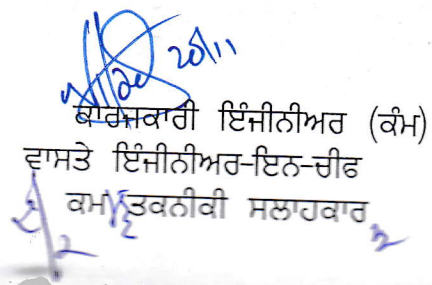 20/11
ਕਾਰਜਕਾਰੀ ਇੰਜੀਨੀਅਰ (ਕੰਮ)
ਵਾਸਤੇ ਇੰਜੀਨੀਅਰ-ਇਨ-ਚੀਫ
ਕਮ ਤਕਨੀਕੀ ਸਲਾਹਕਾਰ